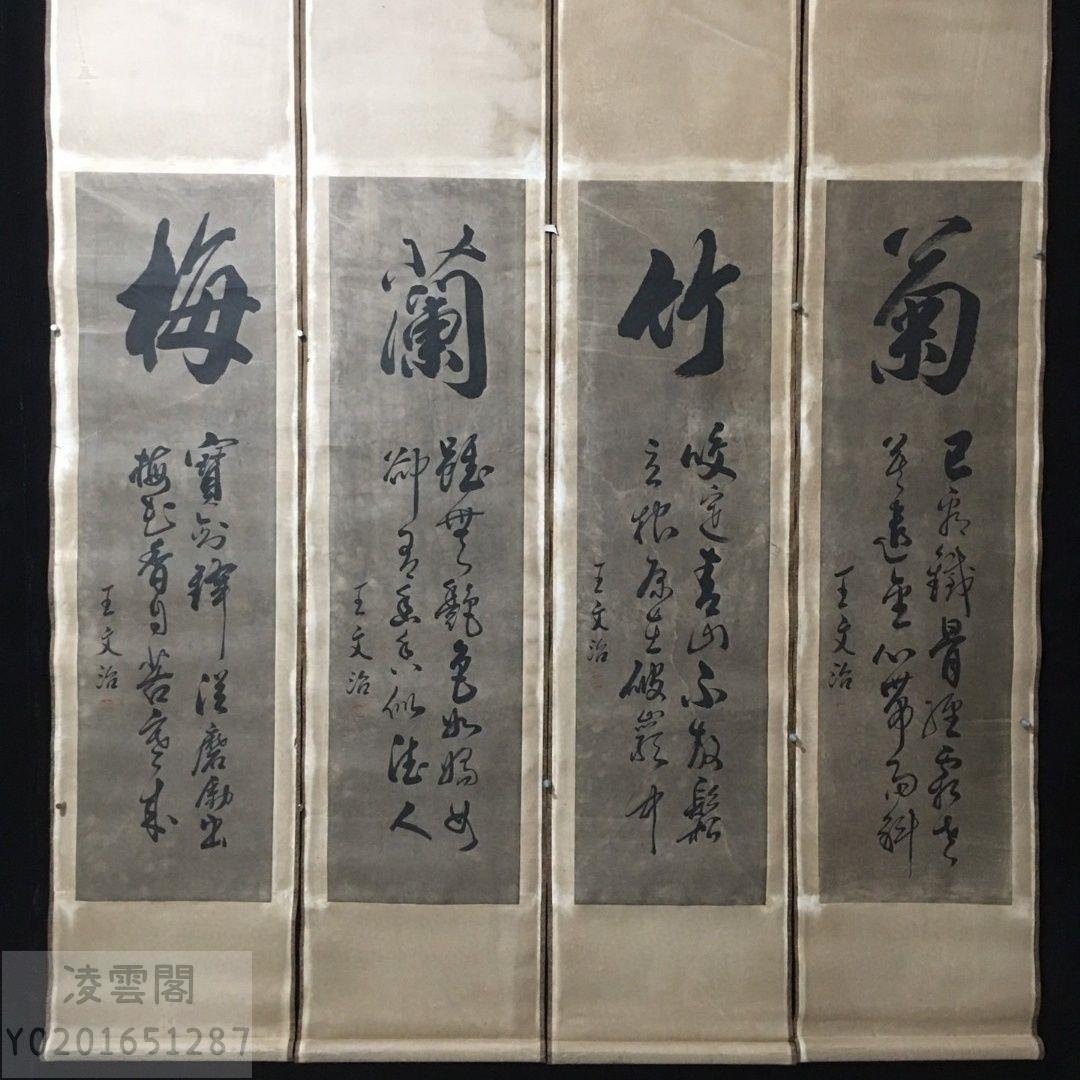 梅
寶劍鋒從磨勵出
梅花香自苦寒來
王文治
蘭
雖無艷色如嬌女
卻有幽香似德人
王文治
竹
咬定青山不放鬆
立根原在破巖中
王文治
菊
已看鐵骨經霜老
莫遣金心帶雨斜
王文治
凌雲閣
Y0201651287